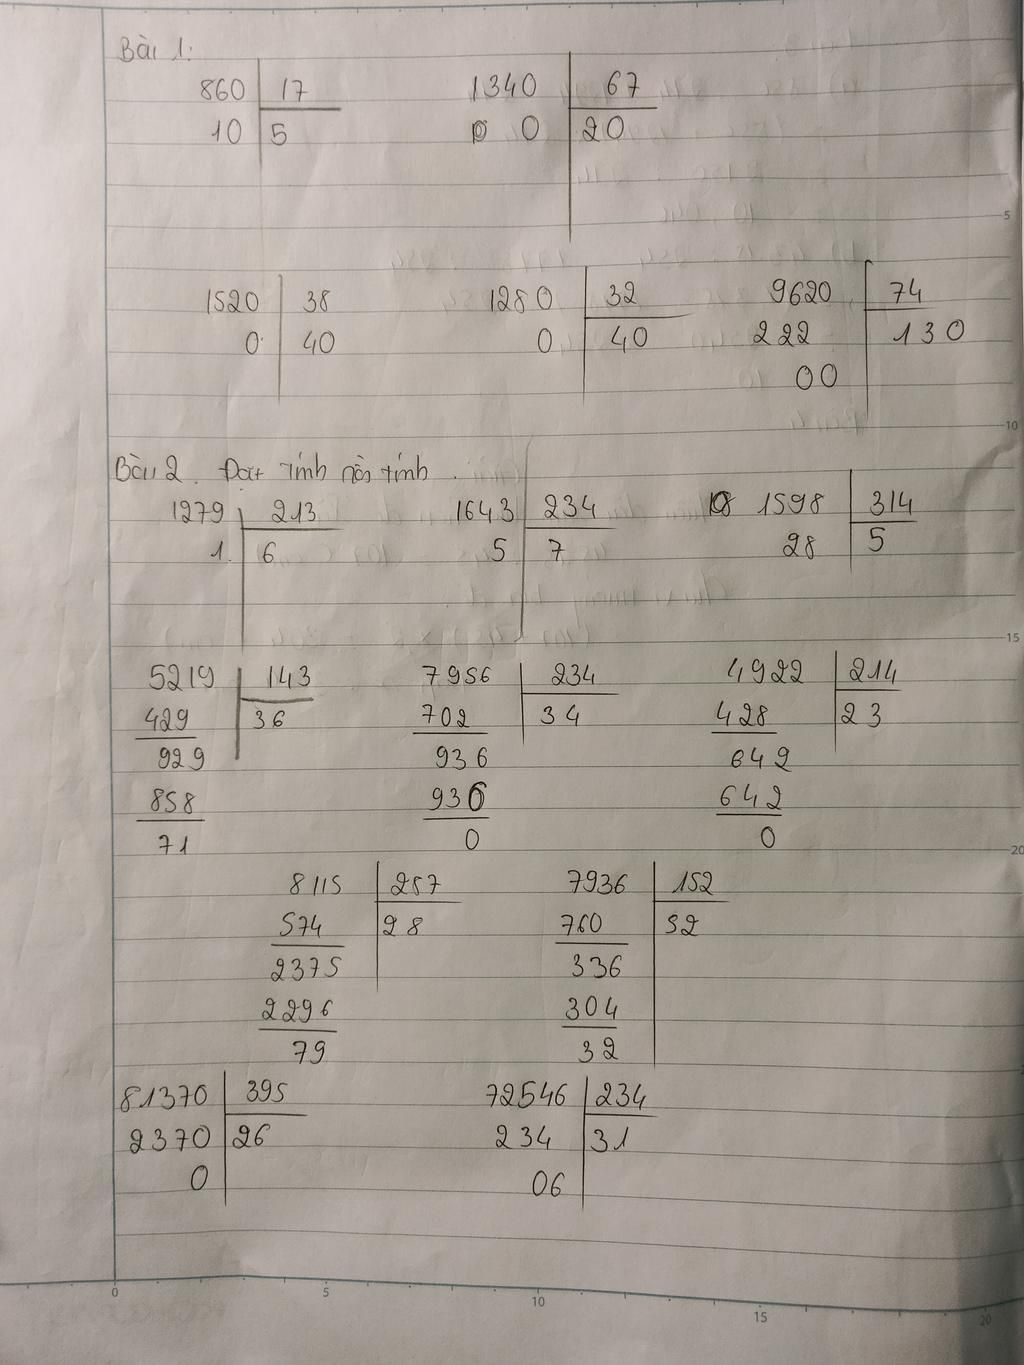 Bài 1:
860 17 1340 67
10 5 0 0 20
1520 38 1280 32 9620 74
0 40 0 40 222 130
00
Bài 2. Đặt tính rồi tính.
1279 213 1643 234 1598 314
1 6 5 7 28 5
5219 143 7956 234 4922 214
429 36 702 34 428 23
929 936 642
858 936 642
71 0 0
8115 287 7936 152
574 28 760 52
2375 336
2296 304
79 32
81370 395 72546 234
2370 26 234 31
0 06
5
10
15
20
0 5 10 15 20